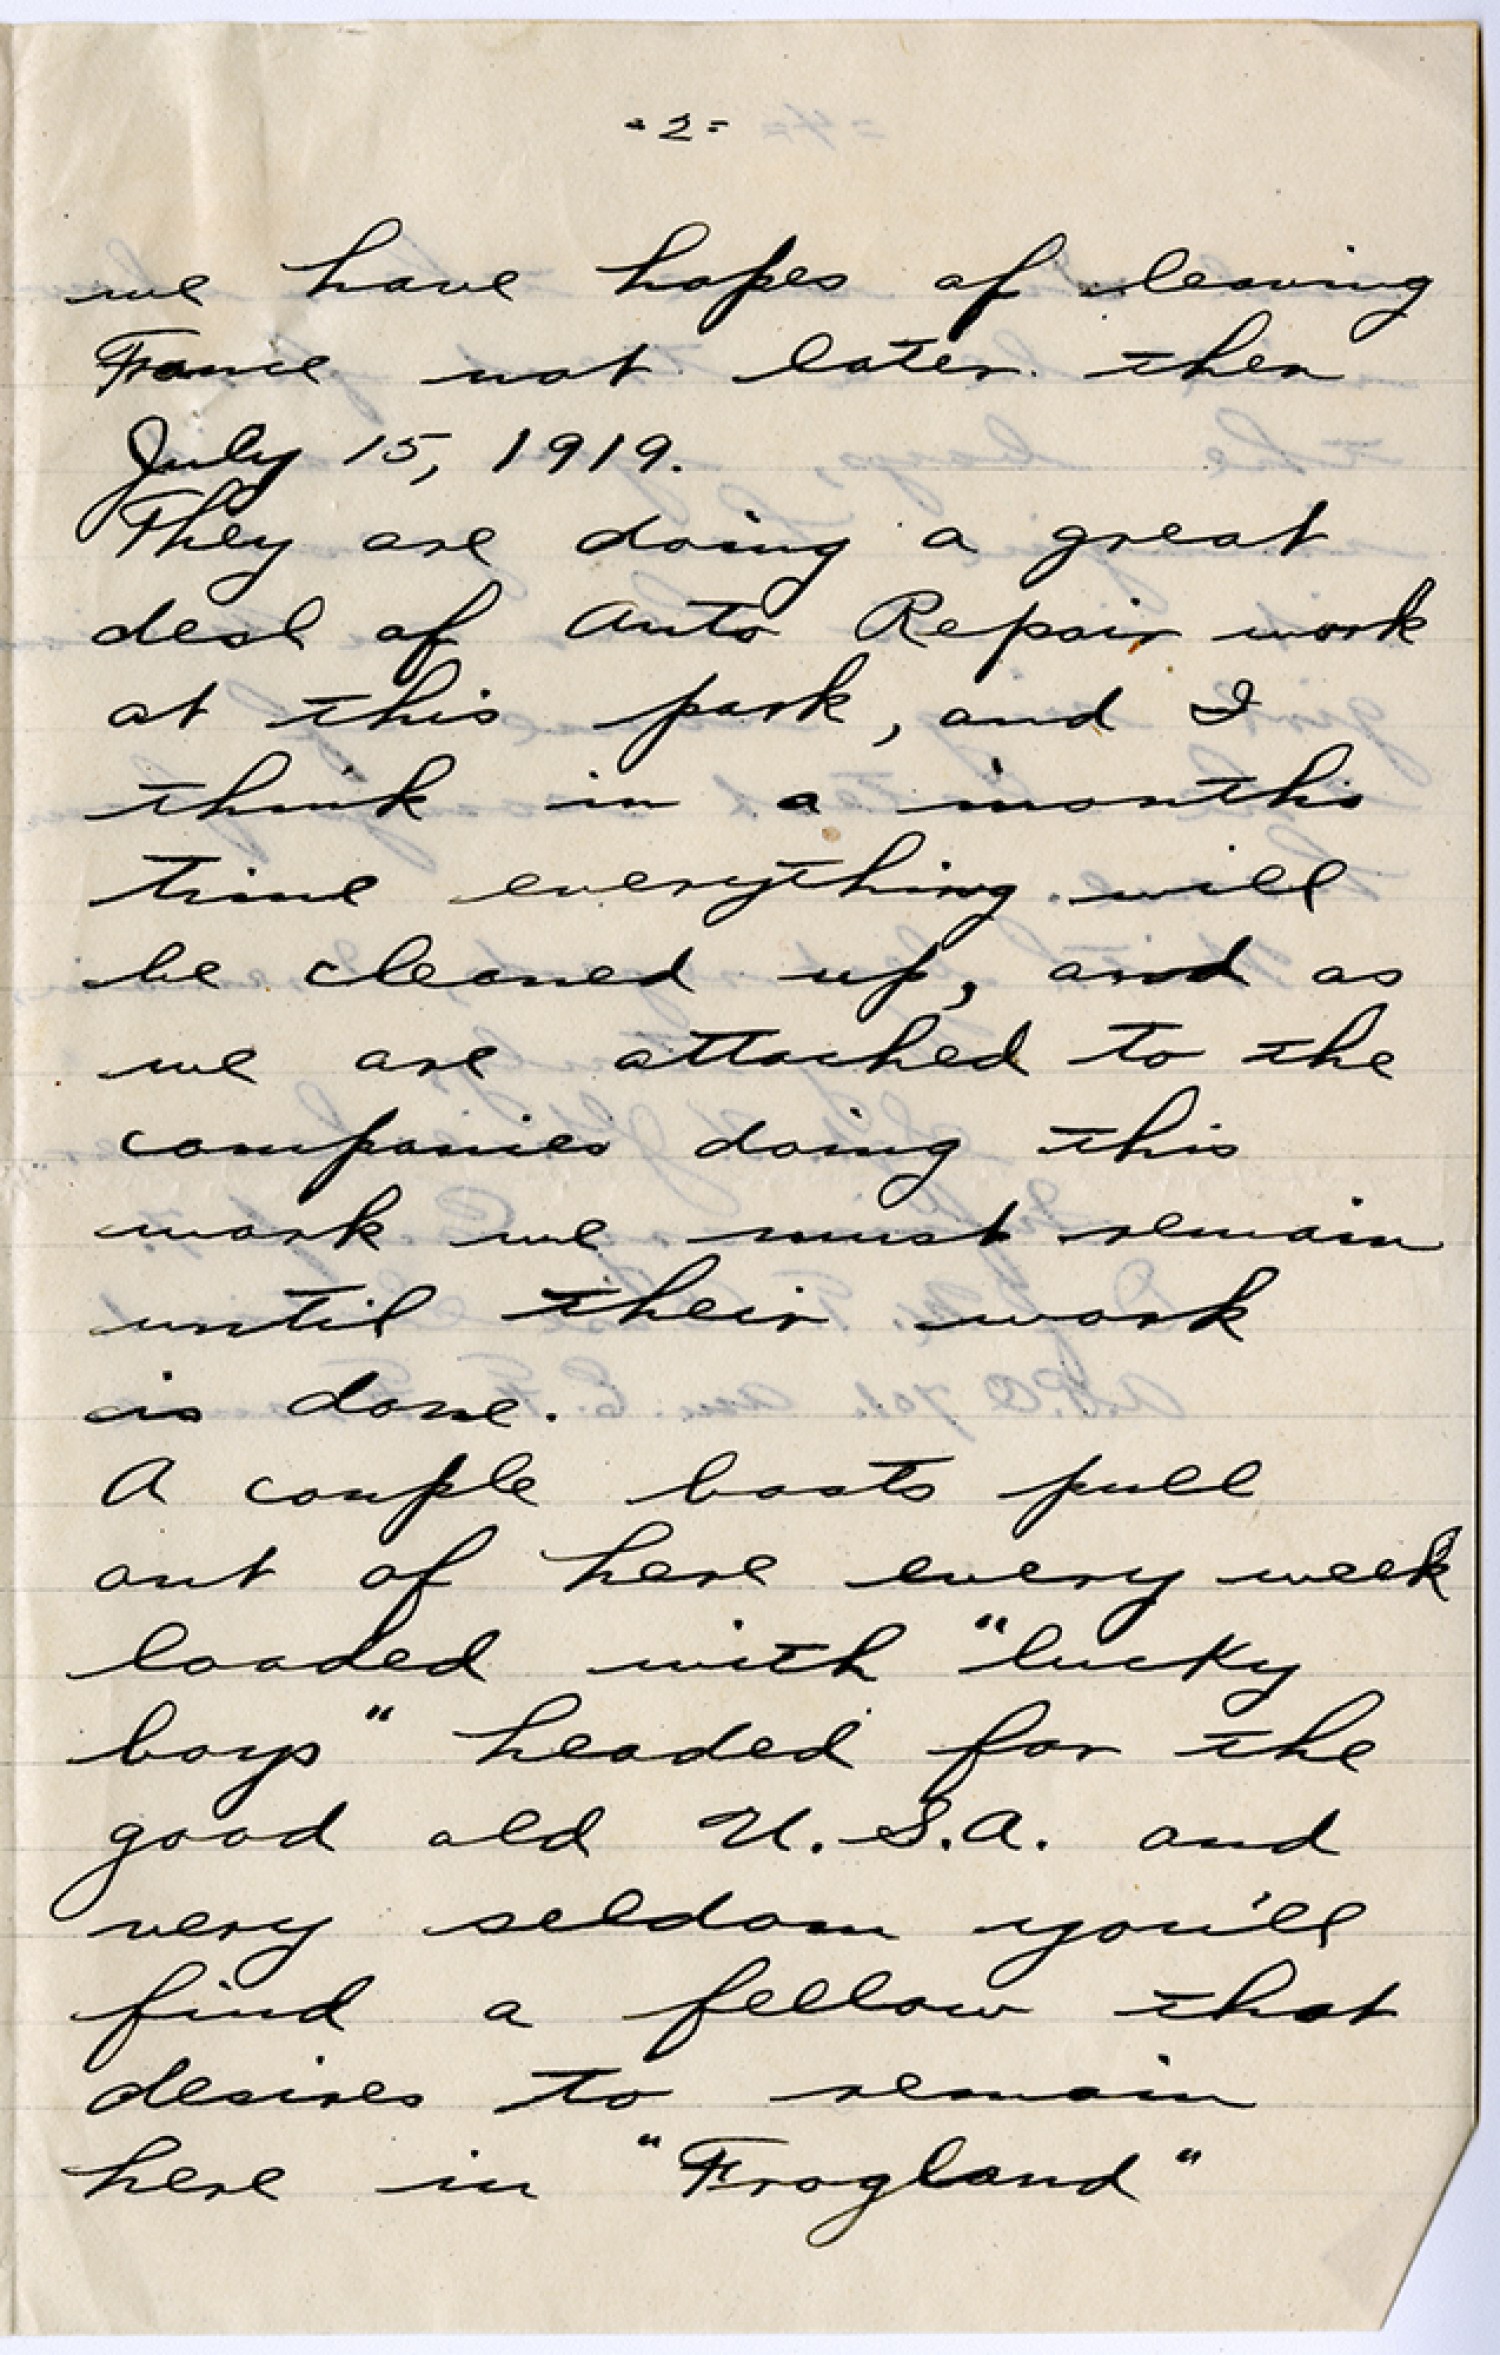 -2-
we have hopes of leaving
France not later then
July 15, 1919.
They are doing a great
deal of Auto Repair work
at this park, and I
think in a months
time everything will
be cleaned up, and as
we are attached to the
companies doing this
work we must remain
until their work
is done.
A couple boats pull
out of here every week
loaded with "lucky
boys" headed for the
good old U.S.A. and
very seldom you'll
find a fellow that
desires to remain
here in "Frogland"